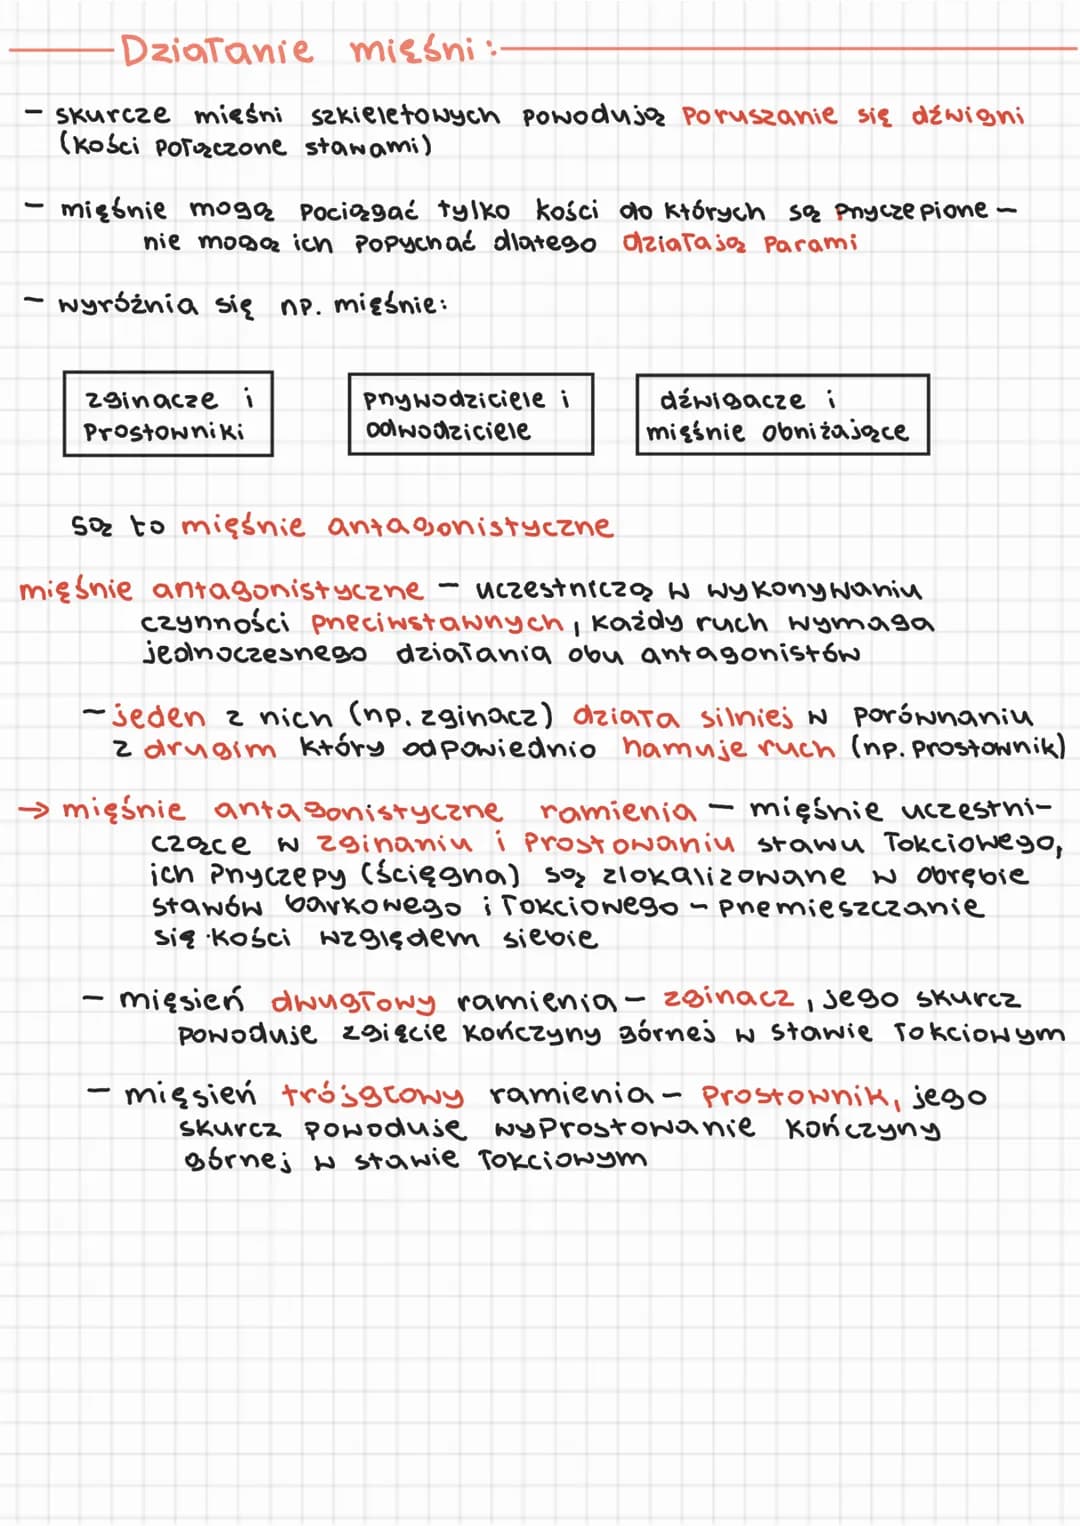 Działanie mięśni:
- skurcze mięśni szkieletowych powodują poruszanie się dźwigni
(kości połączone stawami)
- mięśnie mogą pociągać tylko kości do których są przyczepione -
nie mogą ich popychać dlatego działają parami
- wyróżnia się np. mięśnie:
zginacze i
prostowniki
przywodziciele i
odwodziciele
dźwigacze i
mięśnie obniżające
są to mięśnie antagonistyczne
mięśnie antagonistyczne - uczestniczą w wykonywaniu
czynności przeciwstawnych, każdy ruch wymaga
jednoczesnego działania obu antagonistów
- jeden z nich (np. zginacz) działa silniej w porównaniu
z drugim który odpowiednio hamuje ruch (np. prostownik)
→ mięśnie antagonistyczne ramienia - mięśnie uczestni-
czące w zginaniu i prostowaniu stawu łokciowego,
ich przyczepy (ścięgna) są zlokalizowane w obrębie
stawów barkowego i łokciowego - przemieszczanie
się kości względem siebie
- mięsień dwugłowy ramienia - zginacz, jego skurcz
powoduje zgięcie kończyny górnej w stawie łokciowym
- mięsień trójgłowy ramienia - prostownik, jego
skurcz powoduje wyprostowanie kończyny
górnej w stawie łokciowym